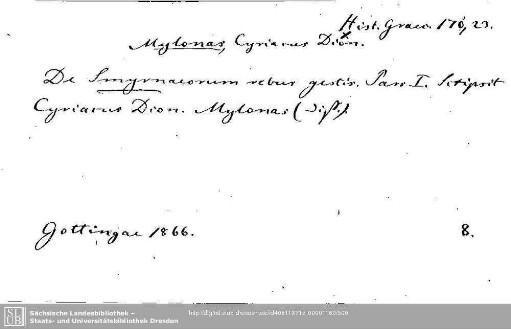 Hist. Graec. 170, 23.
Mylonas, Cyriacus Dion.
De Smyrnaeorum rebus gestis. Pars I. Scripsit
Cyriacus Dion. Mylonas (Diss.).
Gottingae 1866.
8.
SLUB
Sächsische Landesbibliothek –
Staats- und Universitätsbibliothek Dresden